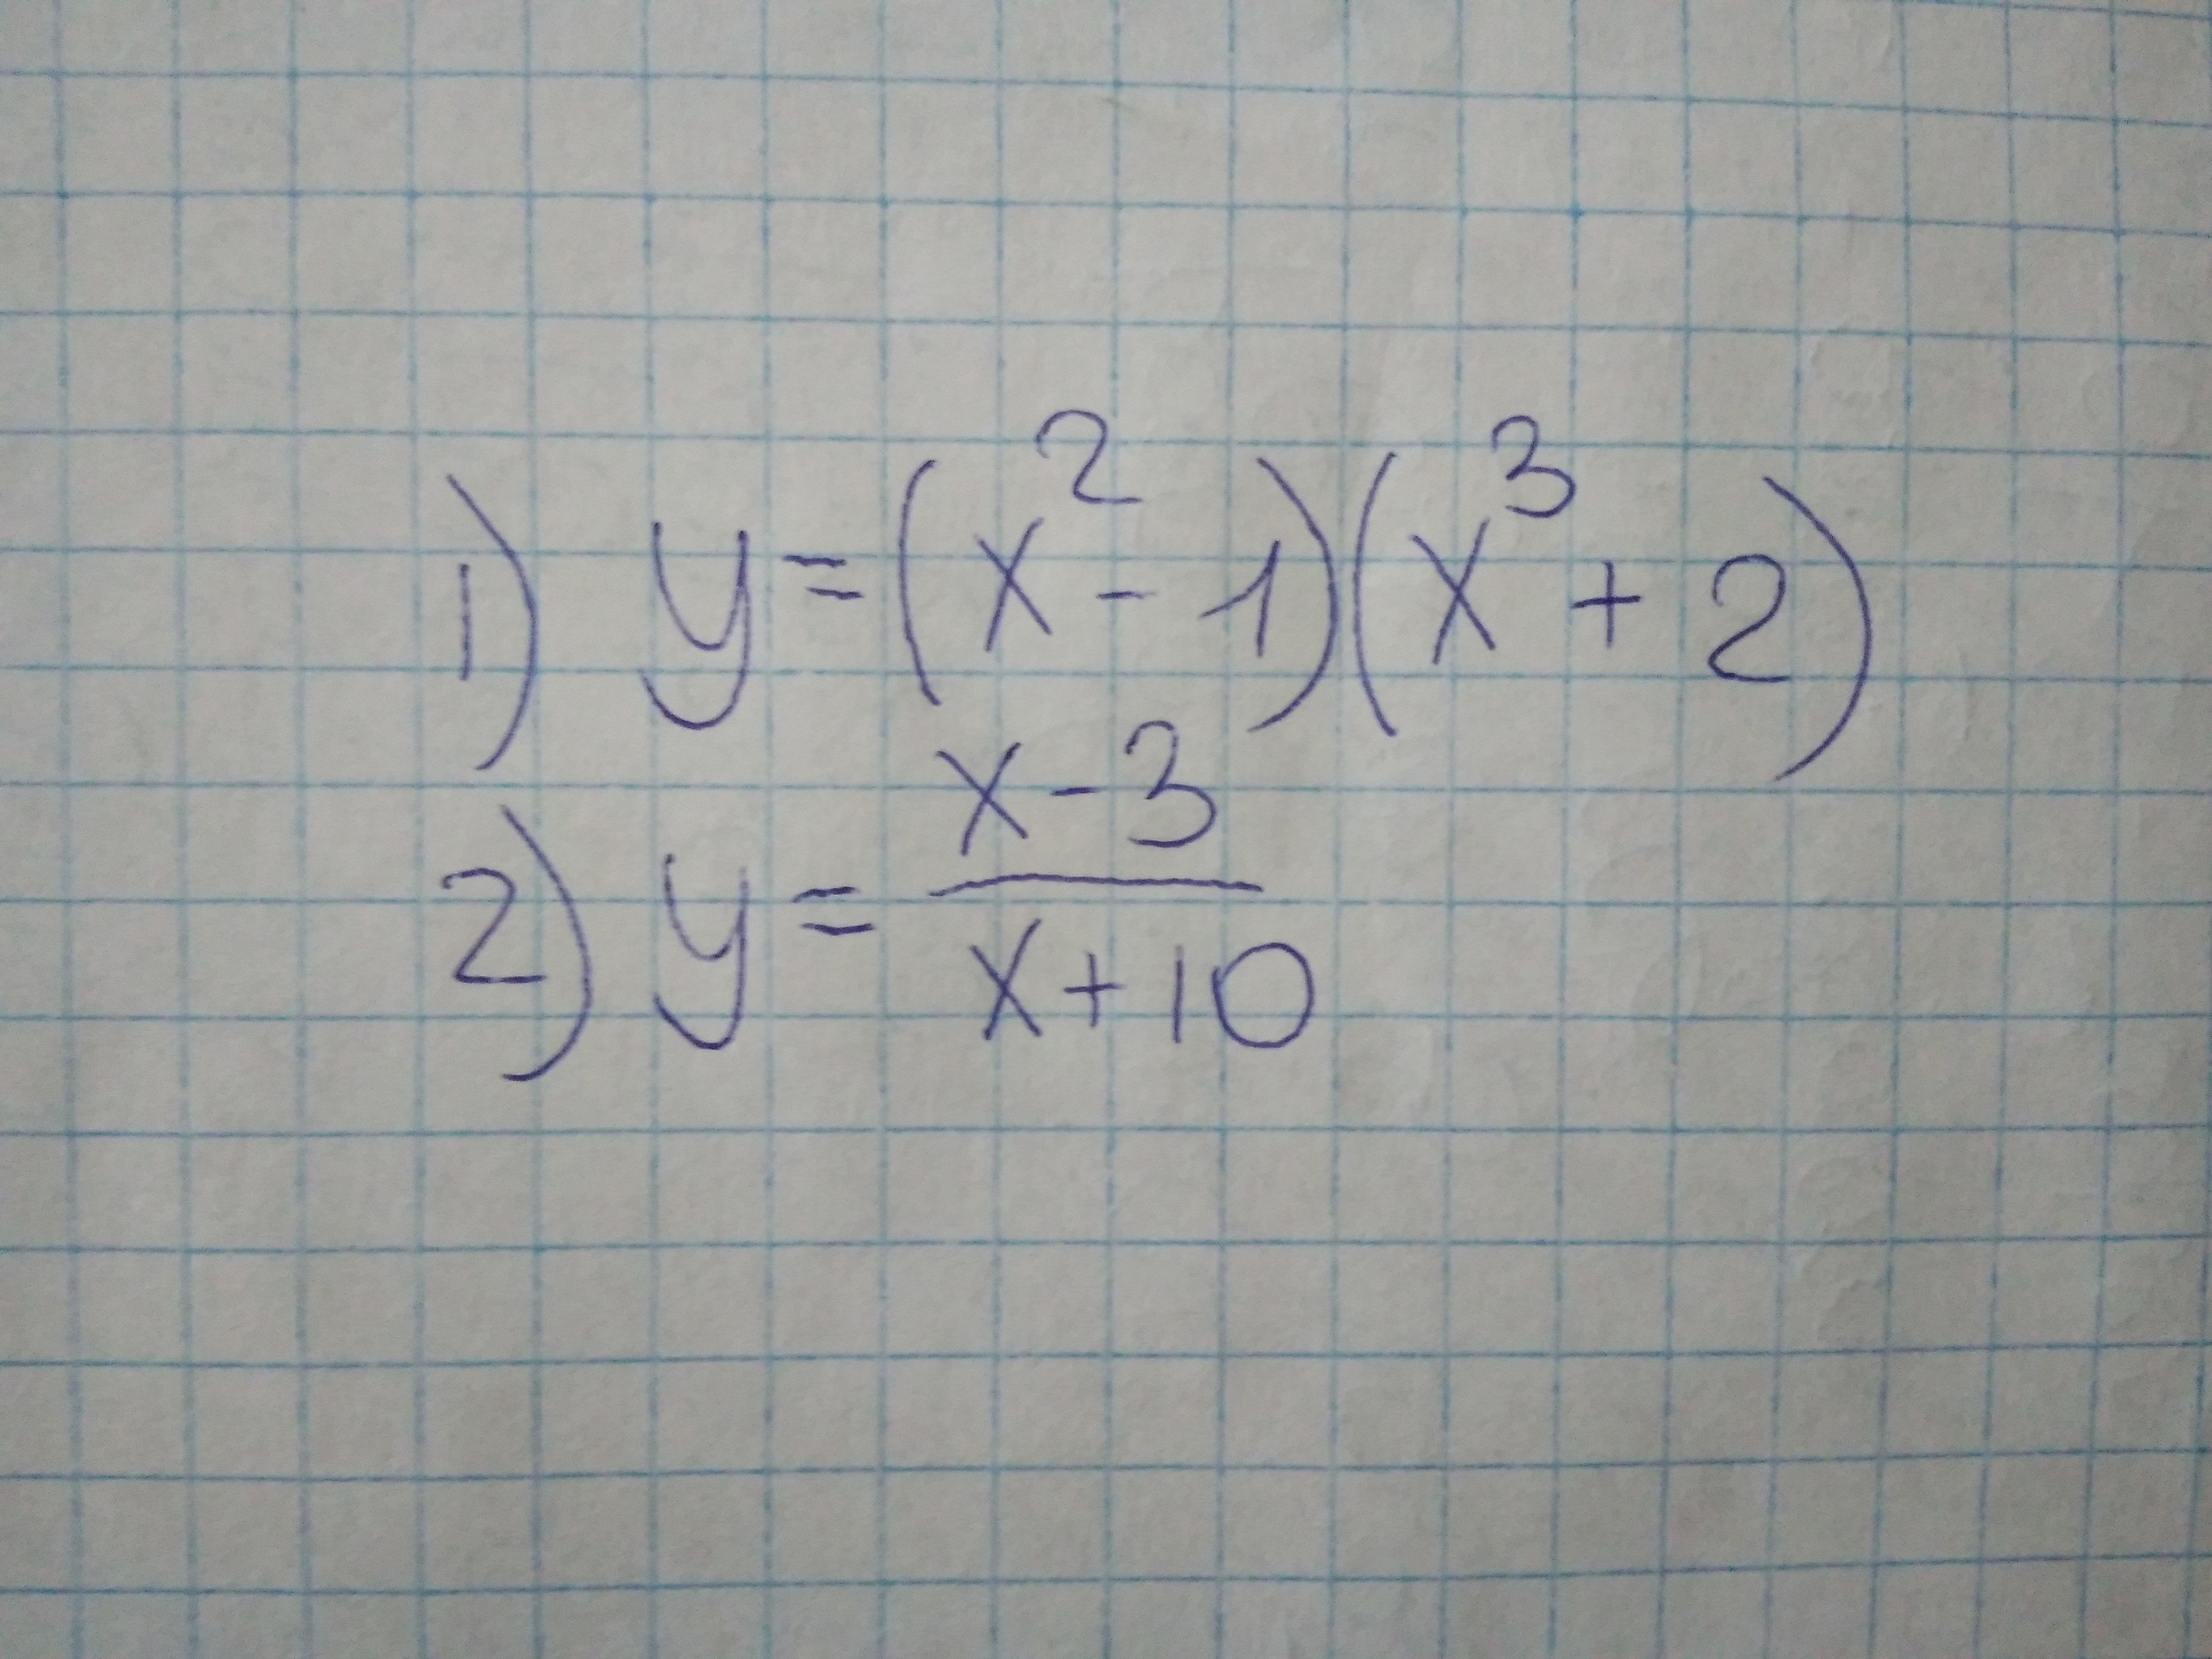 1) y = (x² - 1)(x³ + 2)
2) y = (x - 3)/(x + 10)